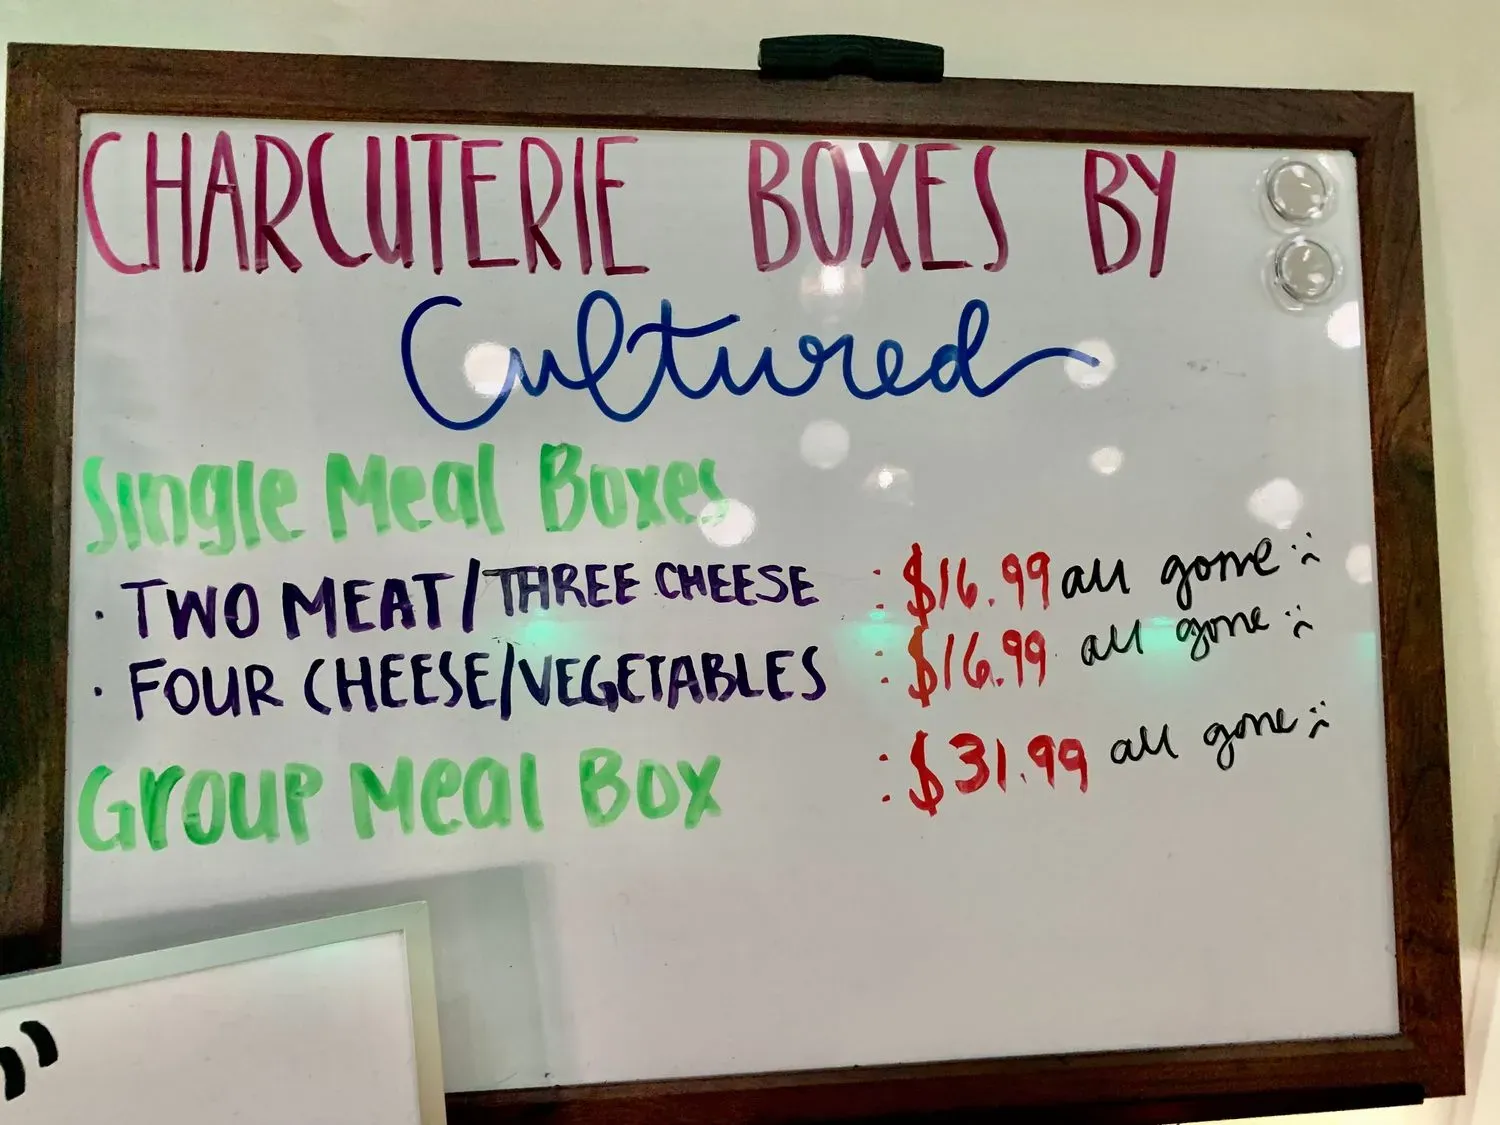 CHARCUTERIE BOXES BY
Cultured
Single Meal Boxes
· TWO MEAT/THREE CHEESE : $16.99 all gone :(
· FOUR CHEESE/VEGETABLES : $16.99 all gone :(
Group Meal Box : $31.99 all gone :(
"